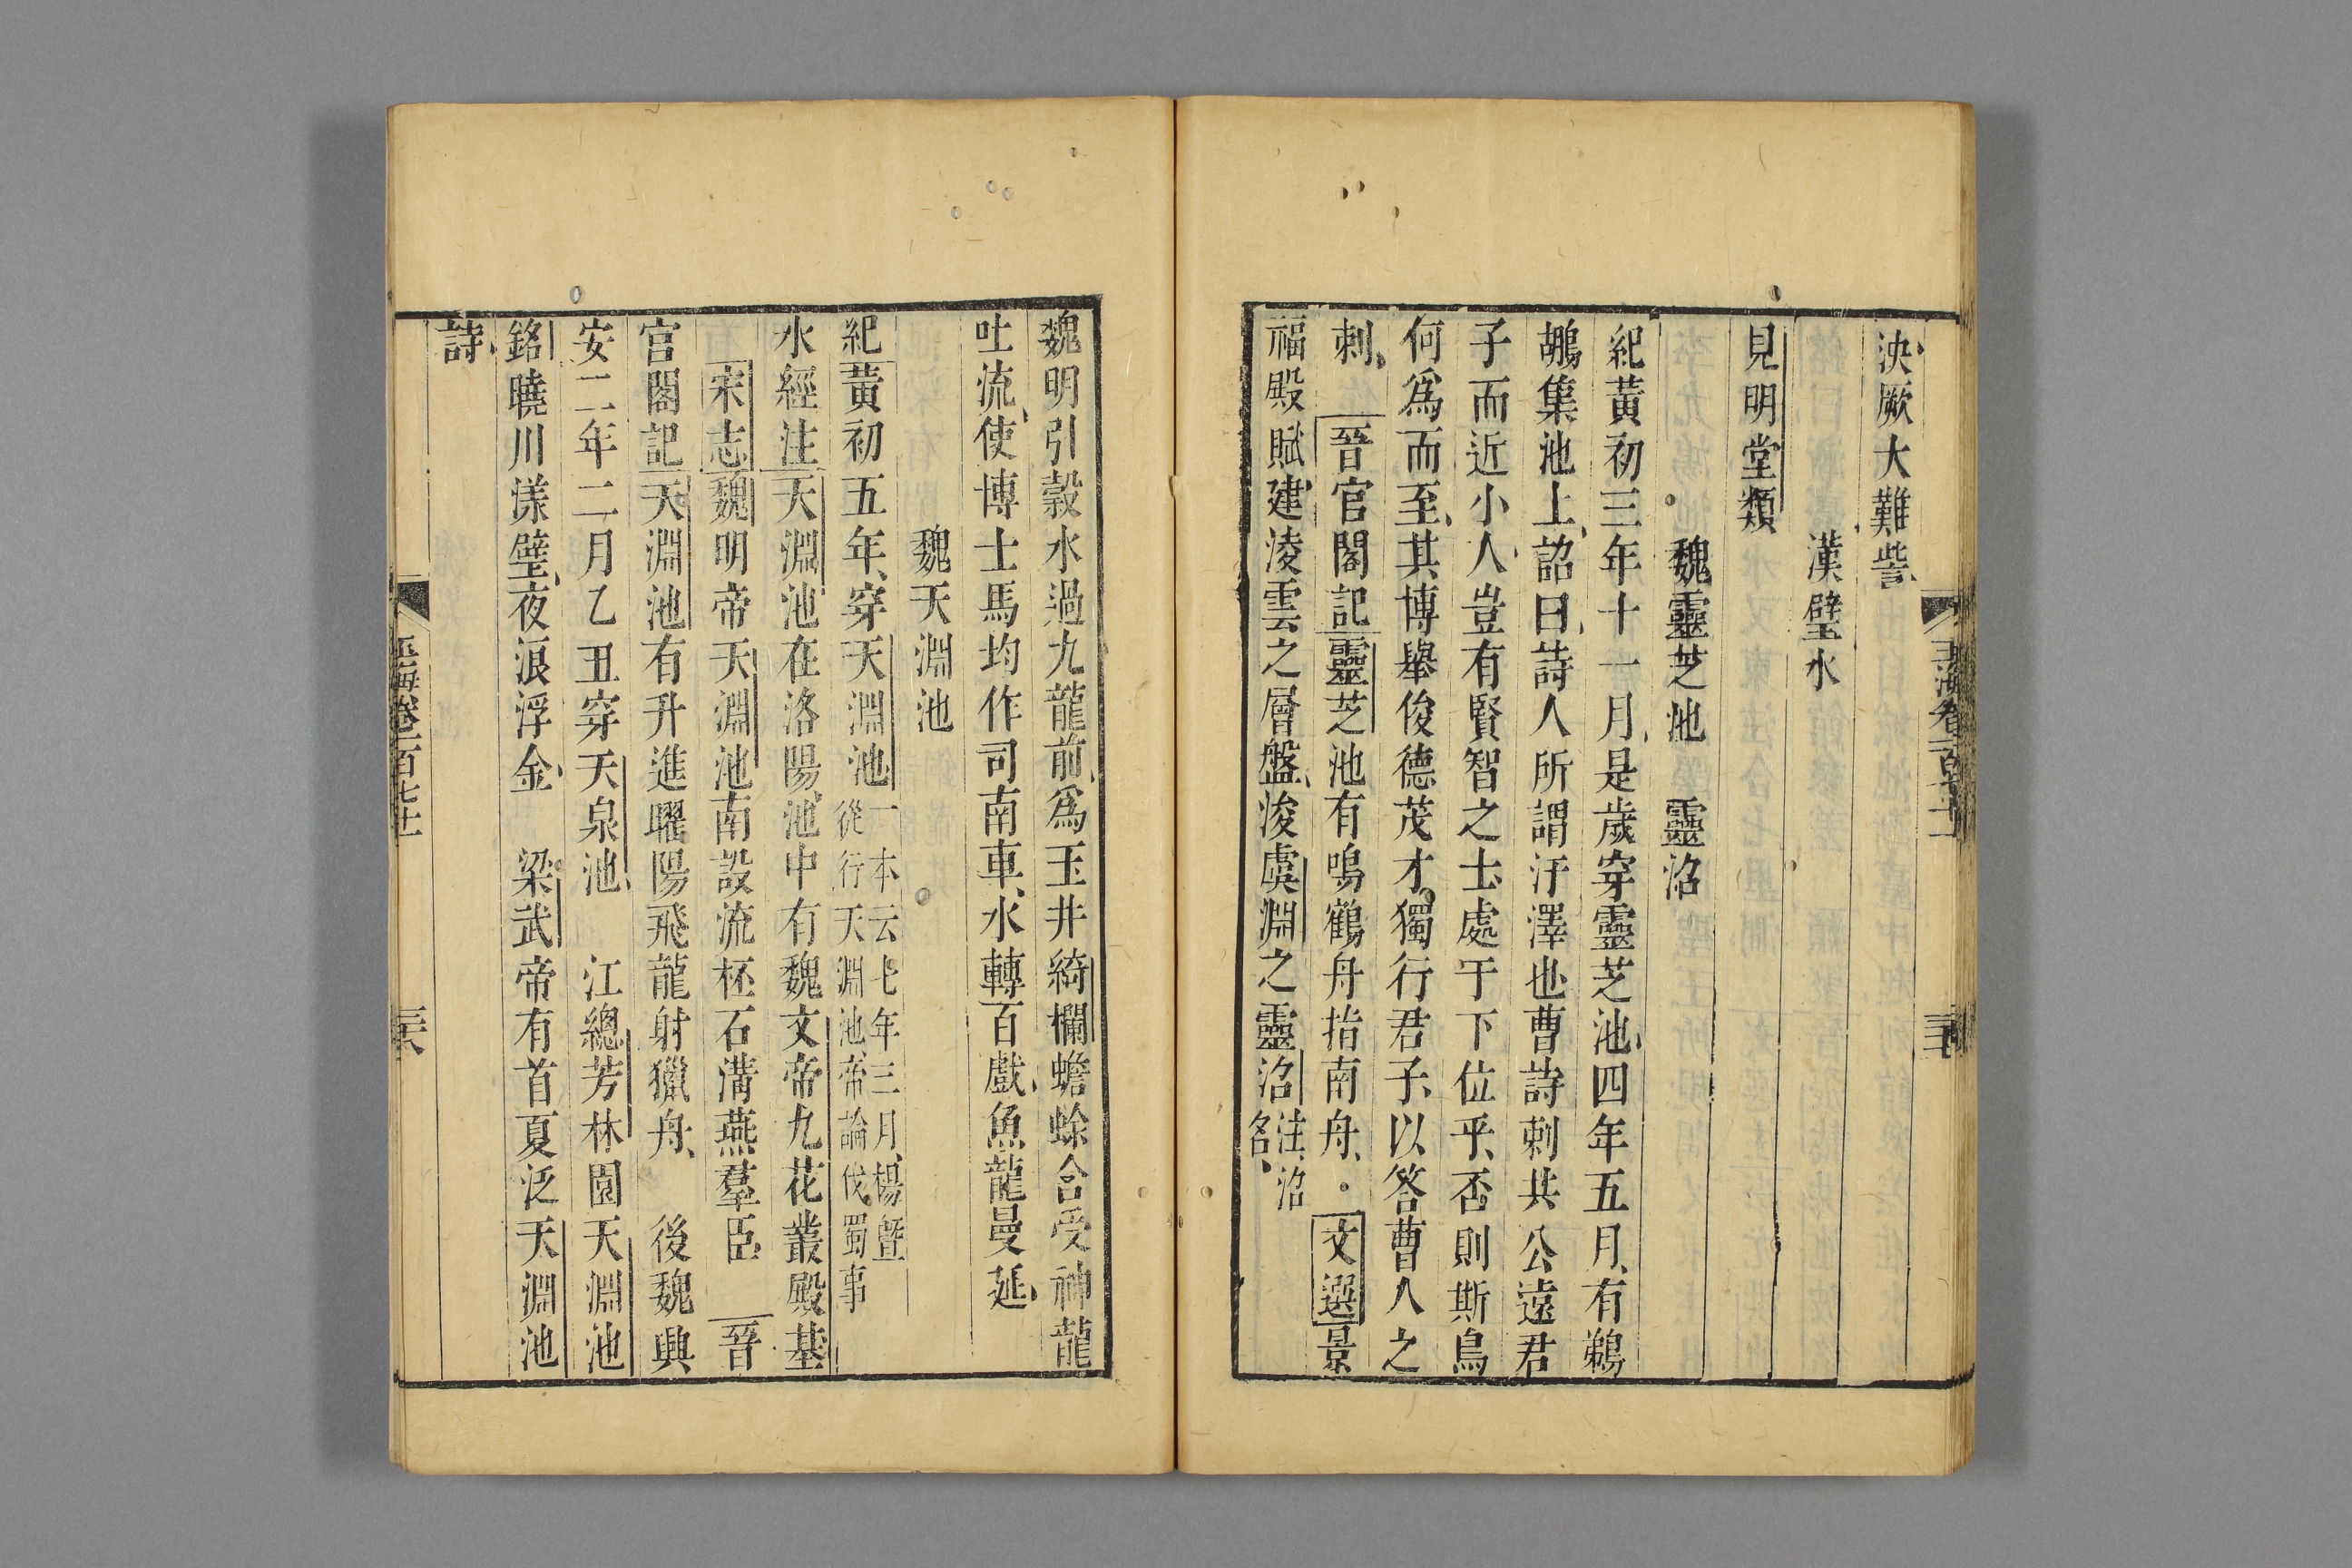 泱厥大難訾
漢璧水
見明堂類
魏靈芝池　靈沼
紀黃初三年十一月是歲穿靈芝池四年五月有鵜
鶘集池上詔曰詩人所謂汙澤也曹詩刺共公遠君
子而近小人豈有賢智之士處于下位乎否則斯鳥
何爲而至其博舉俊德茂才獨行君子以答曹人之
刺　晉宮閣記靈芝池有鳴鶴舟指南舟。文選景
福殿賦建淩雲之層盤浚虞淵之靈沼注沼名
玉海卷一百七十一
魏明引穀水過九龍前爲玉井綺欄蟾蜍含受神龍
吐流使博士馬均作司南車水轉百戲魚龍曼延
魏天淵池
紀黃初五年穿天淵池一本云七年三月楊暨從行天淵池帝論伐蜀事
水經注天淵池在洛陽池中有魏文帝九花叢殿基
宋志魏明帝天淵池南設流柸石溝燕羣臣　晉
宮閣記天淵池有升進曜陽飛龍射獵舟　後魏興
安二年二月乙丑穿天泉池　江總芳林園天淵池
銘曉川漾璧夜浪浮金　梁武帝有首夏泛天淵池
詩
玉海卷一百七十一　三六